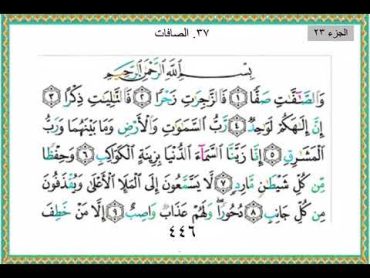 الجزء ٢٣
٣٧. الصافات
بِسْمِ ٱللَّهِ ٱلرَّحْمَٰنِ ٱلرَّحِيمِ
وَٱلصَّٰٓفَّٰتِ صَفًّا ١ فَٱلزَّٰجِرَٰتِ زَجْرًا ٢ فَٱلتَّٰلِيَٰتِ ذِكْرًا ٣
إِنَّ إِلَٰهَكُمْ لَوَٰحِدٌ ٤ رَّبُّ ٱلسَّمَٰوَٰتِ وَٱلْأَرْضِ وَمَا بَيْنَهُمَا وَرَبُّ
ٱلْمَشَٰرِقِ ٥ إِنَّا زَيَّنَّا ٱلسَّمَآءَ ٱلدُّنْيَا بِزِينَةٍ ٱلْكَوَاكِبِ ٦ وَحِفْظًا
مِّن كُلِّ شَيْطَٰنٍ مَّارِدٍ ٧ لَّا يَسَّمَّعُونَ إِلَى ٱلْمَلَإِ ٱلْأَعْلَىٰ وَيُقْذَفُونَ
مِن كُلِّ جَانِبٍ ٨ دُحُورًا وَلَهُمْ عَذَابٌ وَاصِبٌ ٩ إِلَّا مَنْ خَطِفَ
٤٤٦